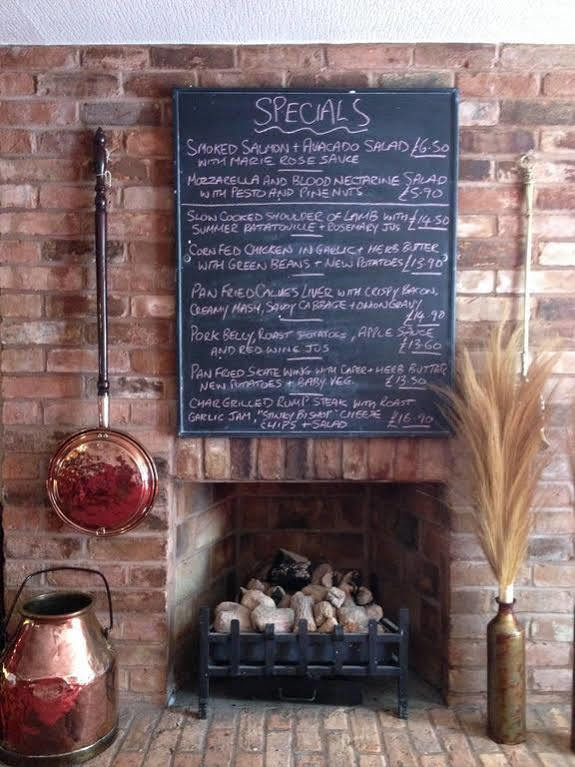 SPECIALS
SMOKED SALMON + AVACADO SALAD £6.50
WITH MARIE ROSE SAUCE
MOZZARELLA AND BLOOD NECTARINE SALAD
WITH PESTO AND PINE NUTS £5.90
SLOW COOKED SHOULDER OF LAMB WITH £14.50
SUMMER RATATOUILLE + ROSEMARY JUS
CORN FED CHICKEN IN GARLIC + HERB BUTTER
WITH GREEN BEANS + NEW POTATOES £13.90
PAN FRIED CALVES LIVER WITH CRISPY BACON,
CREAMY MASH, SAVOY CABBAGE + ONION GRAVY
£14.90
PORK BELLY, ROAST POTATOES, APPLE SAUCE
AND RED WINE JUS £13.60
PAN FRIED SKATE WING WITH CAPER + HERB BUTTER
NEW POTATOES + BABY VEG. £13.50
CHARGRILLED RUMP STEAK WITH ROAST
GARLIC JAM, "STINKY BISHOP" CHEESE £16.90
CHIPS + SALAD